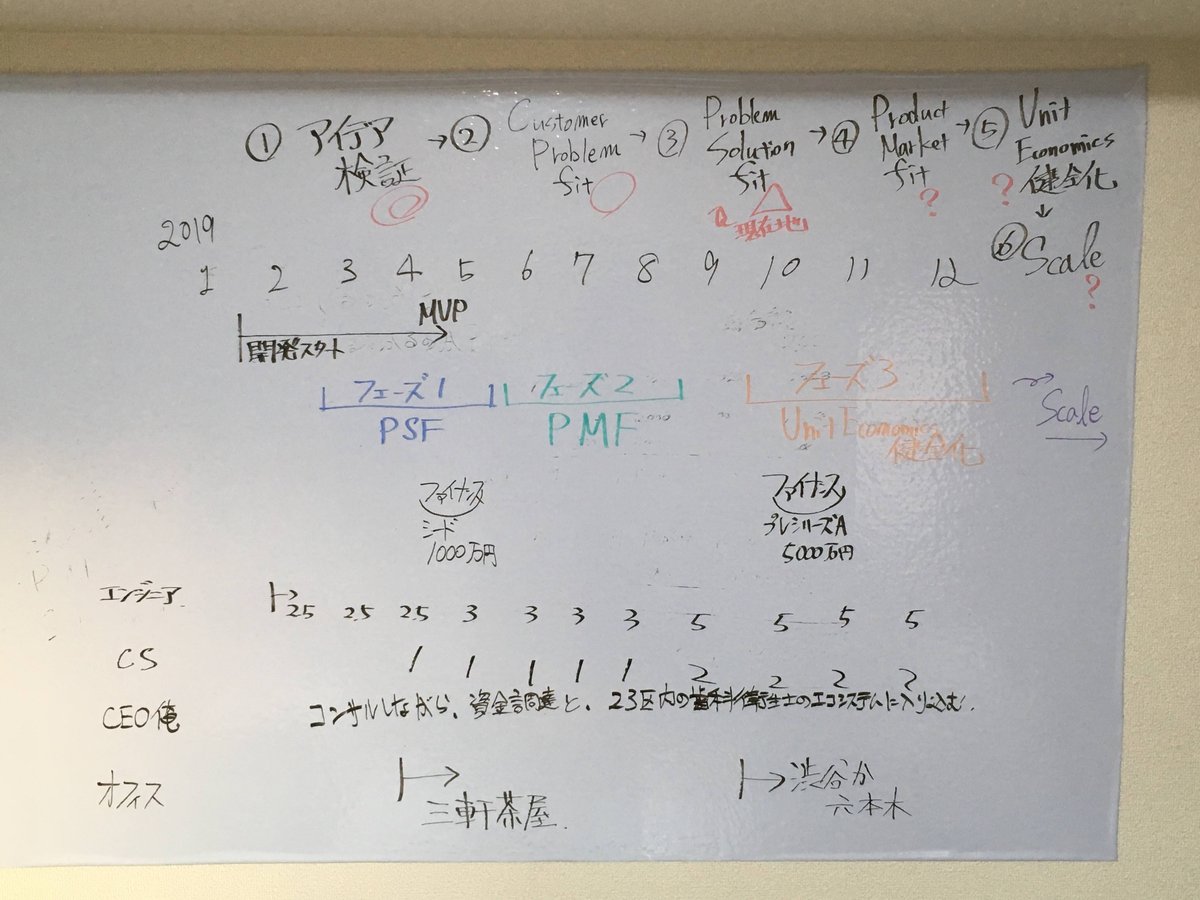 ① アイデア → ② Customer → ③ Problem → ④ Product → ⑤ Unit
検証 Problem Solution Market Economics
fit fit fit ? ? 健全化
◎ ○ △ ↓
現在地
2019 ⑥ Scale
1 2 3 4 5 6 7 8 9 10 11 12 ?
MVP
開発スタート
フェーズ1 フェーズ2 フェーズ3
PSF PMF Unit Economics Scale
健全化
ファイナンス ファイナンス
シード プレシリーズA
1000万円 5000万円
エンジニア 2.5 2.5 2.5 3 3 3 3 5 5 5 5
CS 1 1 1 1 1 2 2 2 2
CEO俺 コンサルしながら、資金調達と、23区内の歯科衛生士のエコシステムに入り込む.
オフィス 三軒茶屋. 渋谷か
六本木